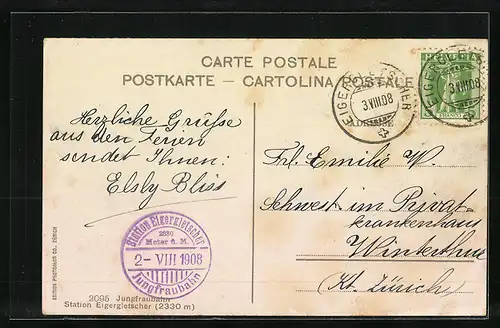 CARTE POSTALE
POSTKARTE — CARTOLINA POSTALE
Herzliche Grüsse
aus den Ferien
sendet Ihnen:
Elsly Bliss
EIGERGLETSCHER
3.VIII.08
HELVETIA
FRANCO
EIGERGLETSCHER
3.VIII.08
Frl. Emilie W.
Schwest. im Privat-
krankenhaus
Winterthur
Kt. Zürich
Station Eigergletscher
2330
Meter ü. M.
2- VIII 1908
Jungfraubahn
2095 Jungfraubahn
Station Eigergletscher (2330 m)